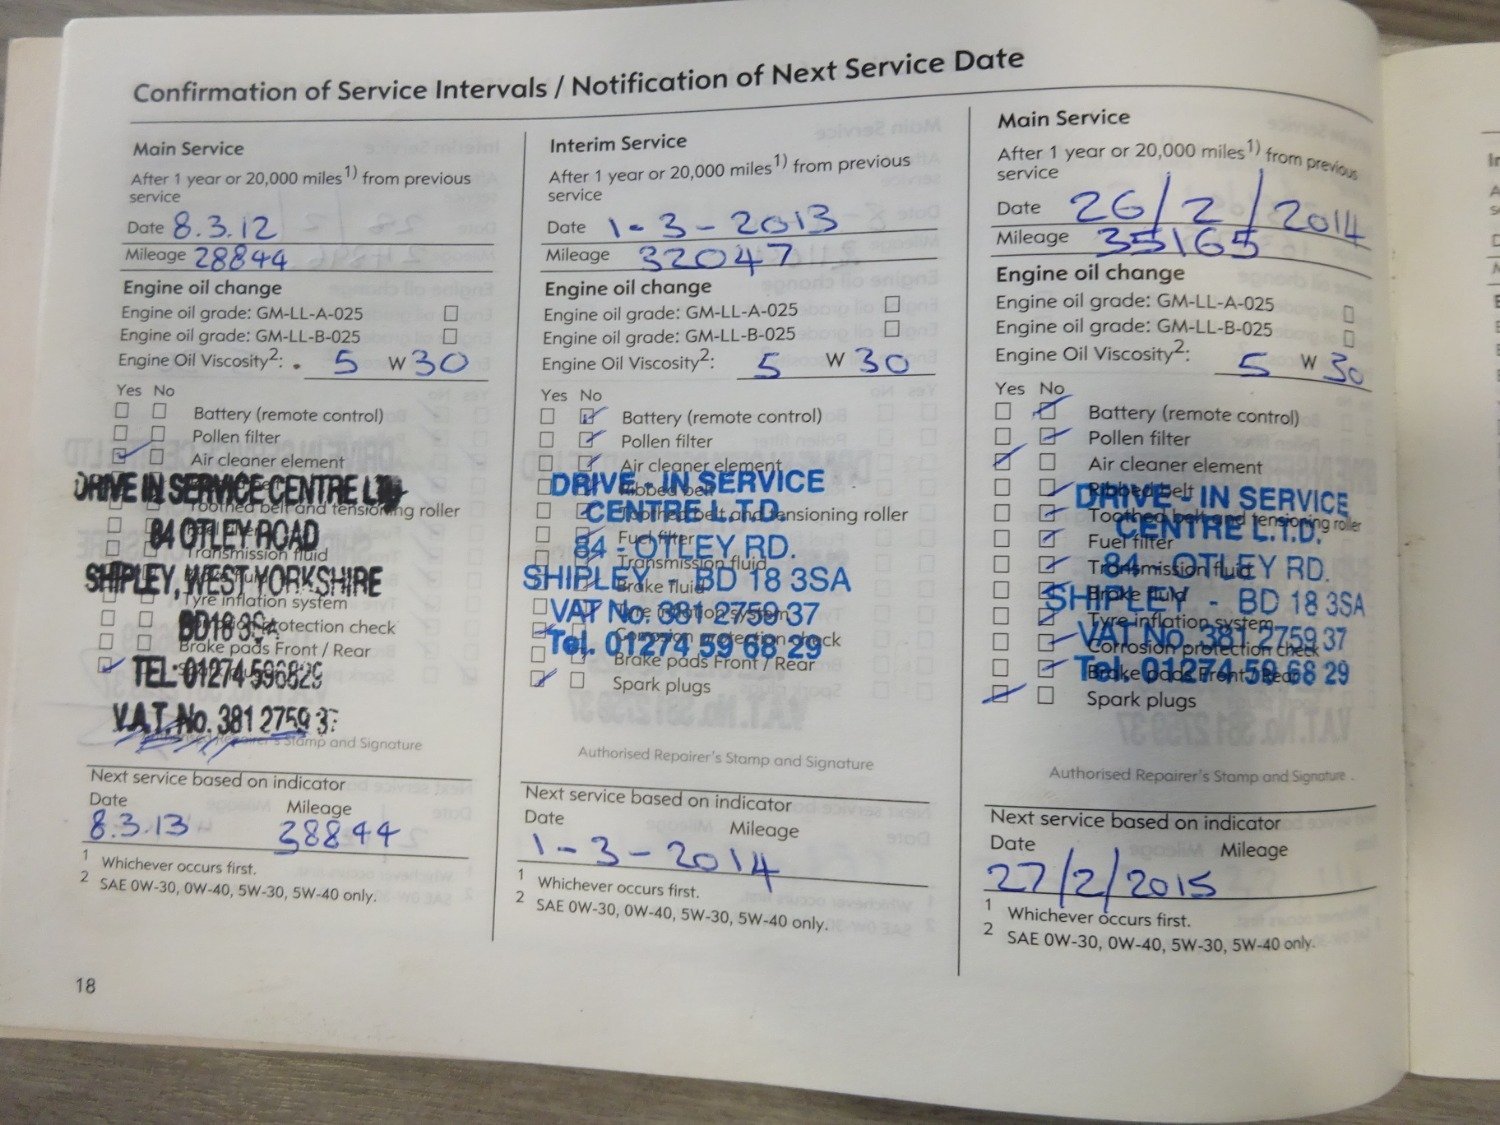 Confirmation of Service Intervals / Notification of Next Service Date
Main Service
After 1 year or 20,000 miles1) from previous
service
Date 8.3.12
Mileage 28844
Engine oil change
Engine oil grade: GM-LL-A-025
Engine oil grade: GM-LL-B-025
Engine Oil Viscosity2: 5 W 30
Yes No
Battery (remote control)
Pollen filter
Air cleaner element
DRIVE IN SERVICE CENTRE LTD
Toothed belt and tensioning roller
84 OTLEY ROAD
Transmission fluid
SHIPLEY, WEST YORKSHIRE
Tyre inflation system
BD18 3SA
protection check
Brake pads Front / Rear
TEL: 01274 596829
V.A.T. No. 381 2759 37
Stamp and Signature
Next service based on indicator
Date Mileage
8.3.13 38844
1 Whichever occurs first.
2 SAE 0W-30, 0W-40, 5W-30, 5W-40 only.
18
Interim Service
After 1 year or 20,000 miles1) from previous
service
Date 1-3-2013
Mileage 32047
Engine oil change
Engine oil grade: GM-LL-A-025
Engine oil grade: GM-LL-B-025
Engine Oil Viscosity2: 5 W 30
Yes No
Battery (remote control)
Pollen filter
Air cleaner element
DRIVE - IN SERVICE
Ribbed belt
CENTRE L.T.D.
Toothed belt and tensioning roller
Fuel filter
84 - OTLEY RD.
Transmission fluid
SHIPLEY - BD 18 3SA
Brake fluid
VAT No. 381 2759 37
Tyre inflation system
Corrosion protection check
Tel. 01274 59 68 29
Brake pads Front / Rear
Spark plugs
Authorised Repairer's Stamp and Signature
Next service based on indicator
Date Mileage
1-3-2014
1 Whichever occurs first.
2 SAE 0W-30, 0W-40, 5W-30, 5W-40 only.
Main Service
After 1 year or 20,000 miles1) from previous
service
Date 26/2/2014
Mileage 35165
Engine oil change
Engine oil grade: GM-LL-A-025
Engine oil grade: GM-LL-B-025
Engine Oil Viscosity2: 5 W 30
Yes No
Battery (remote control)
Pollen filter
Air cleaner element
Ribbed belt
DRIVE - IN SERVICE
Toothed belt and tensioning roller
CENTRE L.T.D.
Fuel filter
Transmission fluid
84 - OTLEY RD.
Brake fluid
SHIPLEY - BD 18 3SA
Tyre inflation system
VAT No. 381 2759 37
Corrosion protection check
Tel. 01274 59 68 29
Brake pads Front / Rear
Spark plugs
Authorised Repairer's Stamp and Signature
Next service based on indicator
Date Mileage
27/2/2015
1 Whichever occurs first.
2 SAE 0W-30, 0W-40, 5W-30, 5W-40 only.